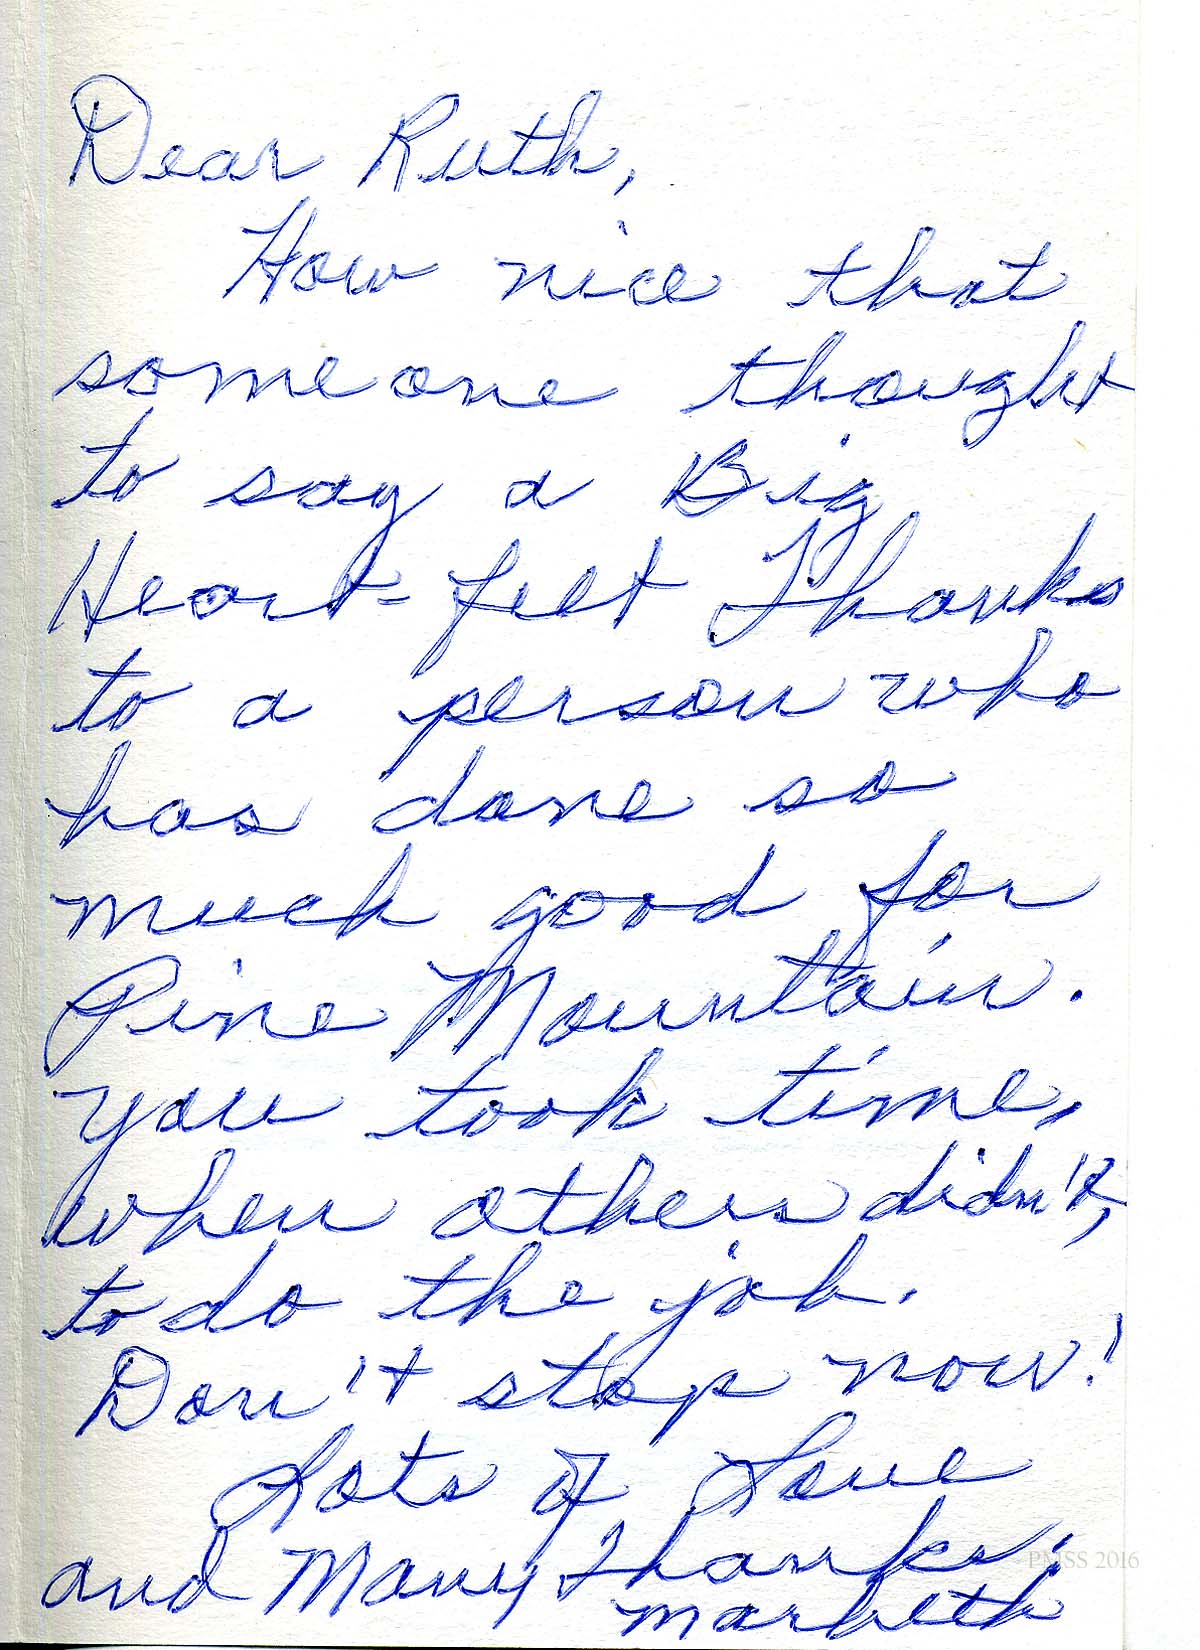 Dear Ruth,
How nice that
someone thought
to say a Big
Heart-felt Thanks
to a person who
has done so
much good for
Pine Mountain.
you took time,
when others didn't,
to do the job.
Don't stop now!
Lots of Love
and Many Thanks,
Marbeth
PMSS 2016